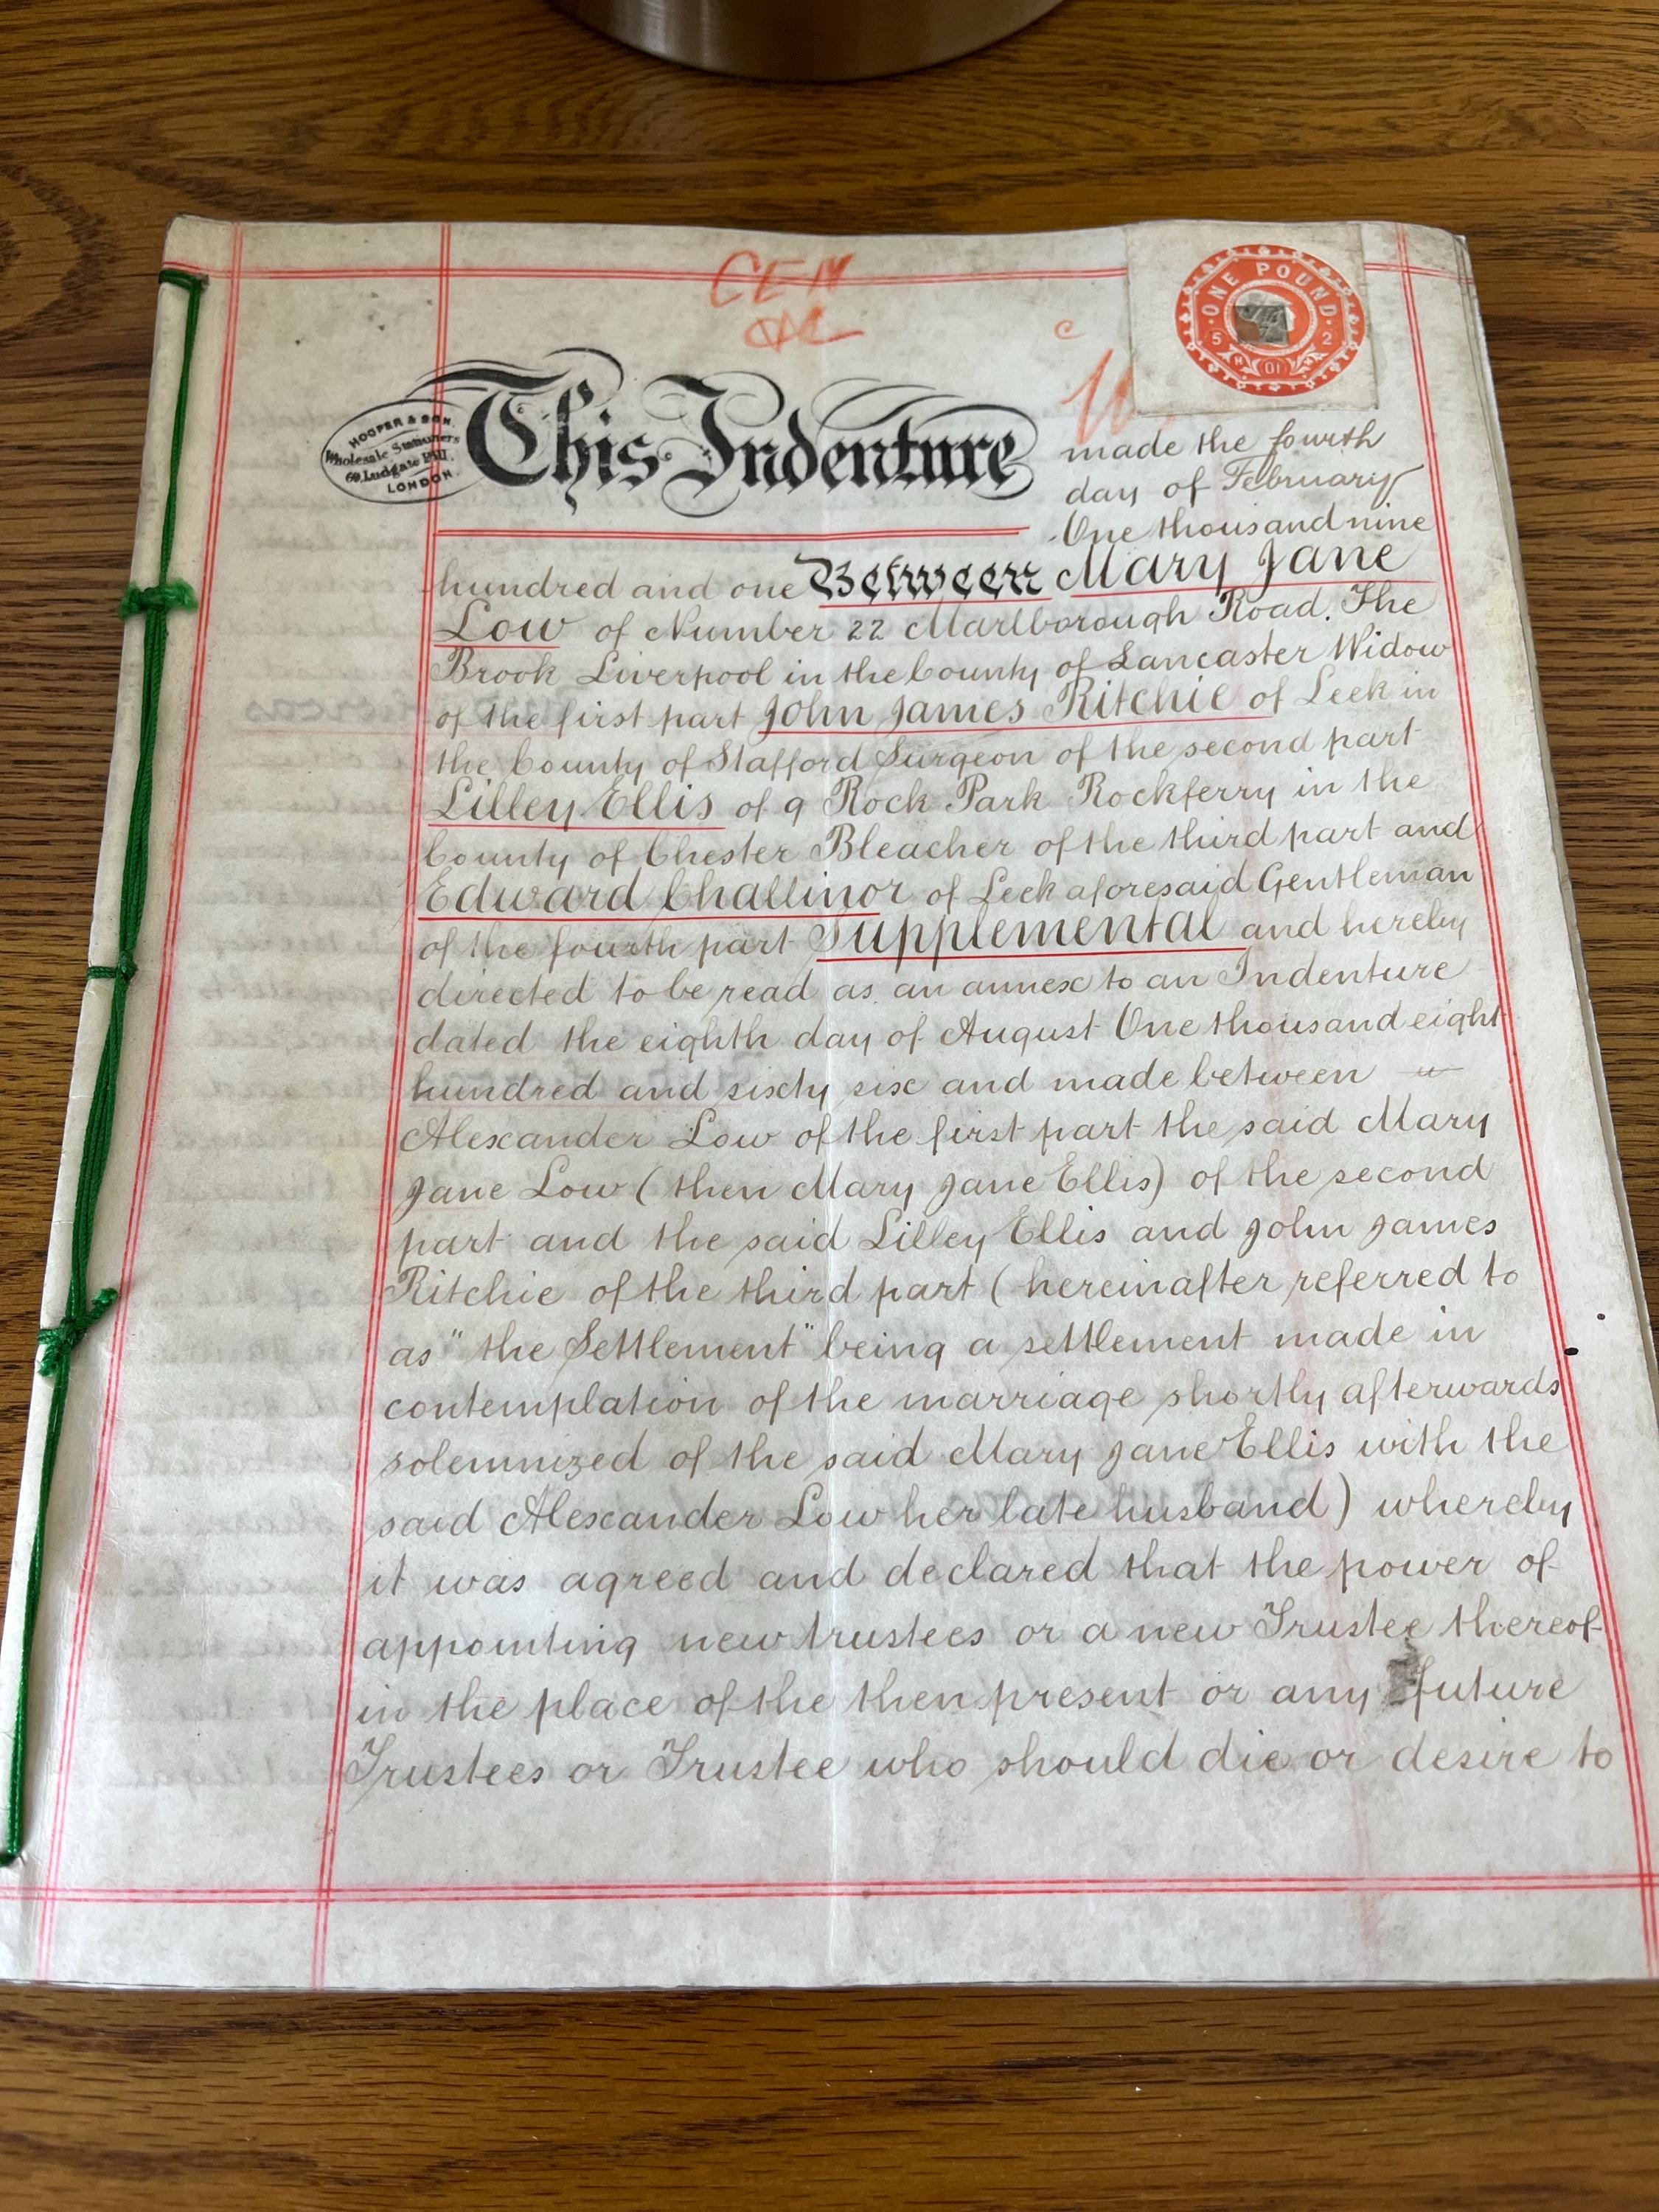 CEM
ONE POUND
5 2
H 01 M
HOOPER & SON.
Wholesale Stationers
69, Ludgate Hill.
LONDON.
This Indenture
made the fourth
day of February
One thousand nine
hundred and one Between Mary Jane
Low of Number 22 Marlborough Road. The
Brook Liverpool in the County of Lancaster Widow
of the first part John James Ritchie of Leek in
the County of Stafford Surgeon of the second part
Lilley Ellis of 9 Rock Park Rockferry in the
County of Chester Bleacher of the third part and
Edward Challinor of Leek aforesaid Gentleman
of the fourth part Supplemental and hereby
directed to be read as an annex to an Indenture
dated the eighth day of August One thousand eight
hundred and sixty six and made between
Alexander Low of the first part the said Mary
Jane Low (then Mary Jane Ellis) of the second
part and the said Lilley Ellis and John James
Ritchie of the third part (hereinafter referred to
as "the Settlement" being a settlement made in
contemplation of the marriage shortly afterwards
solemnized of the said Mary Jane Ellis with the
said Alexander Low her late husband) whereby
it was agreed and declared that the power of
appointing new trustees or a new Trustee thereof
in the place of the then present or any future
Trustees or Trustee who should die or desire to